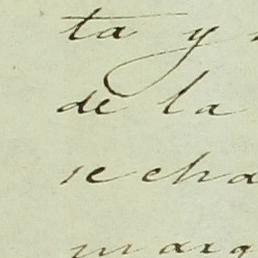 ta y
de la
se cha
marq